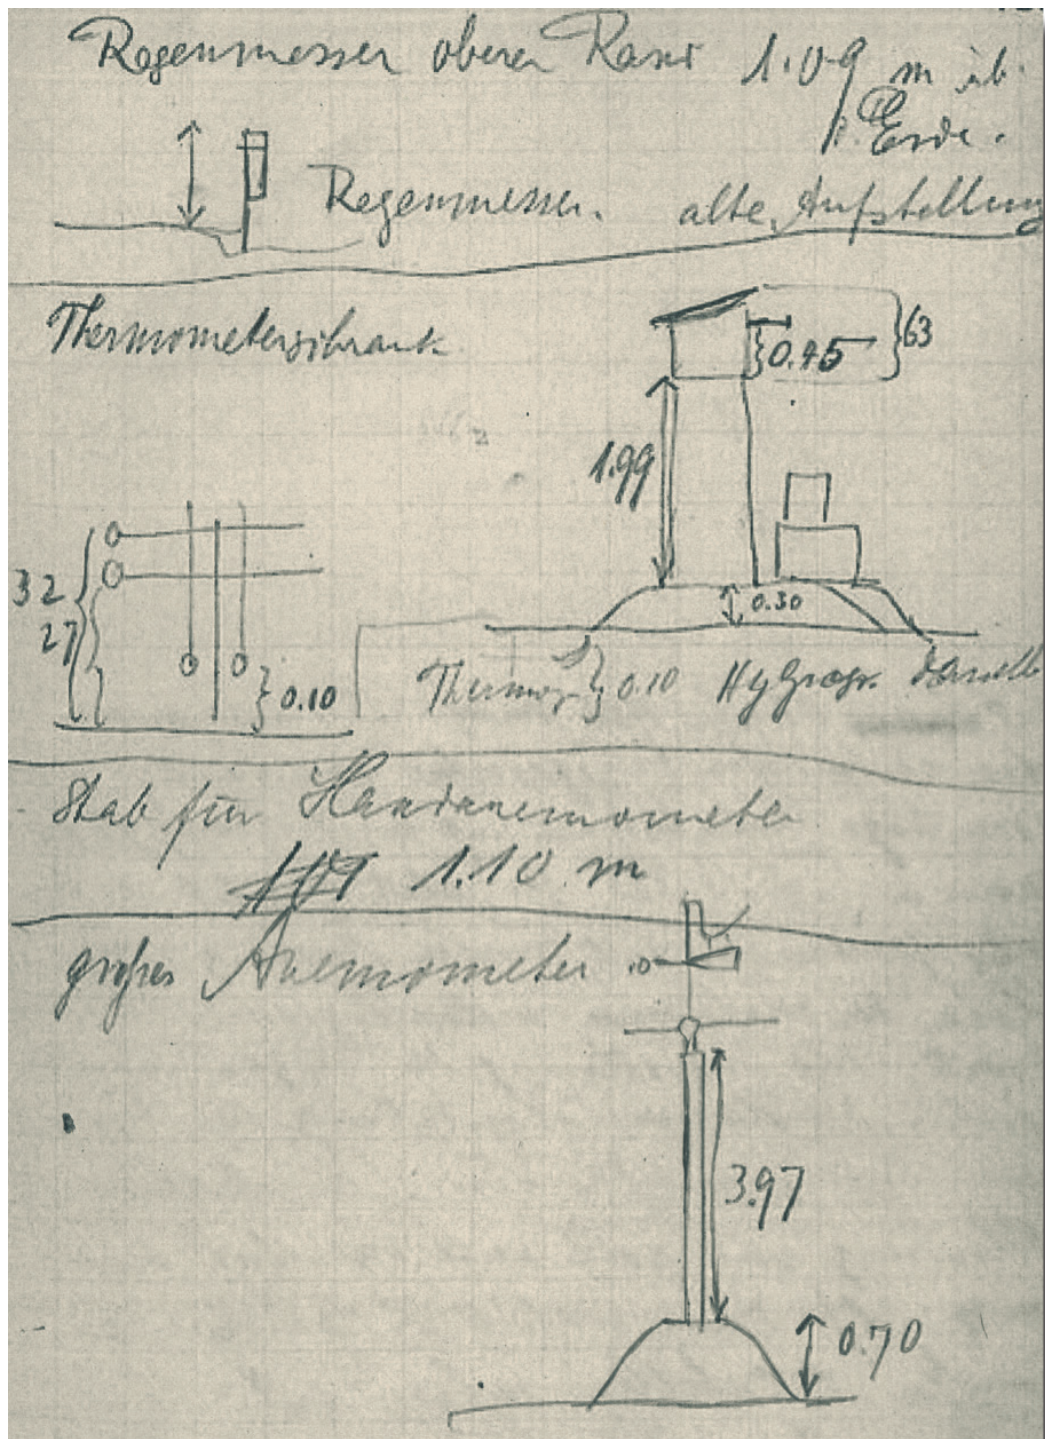 Regenmesser oberer Rand 1.09 m üb.
d. Erde.
Regenmesser. alte Aufstellung
Thermometerschrank
63
0.45
1.99
32
27
0.10
0.30
Thermogr. 0.10 Hygrogr. darselb
Stab für Handanemometer
1.10 m
großes Anemometer
3.97
0.70